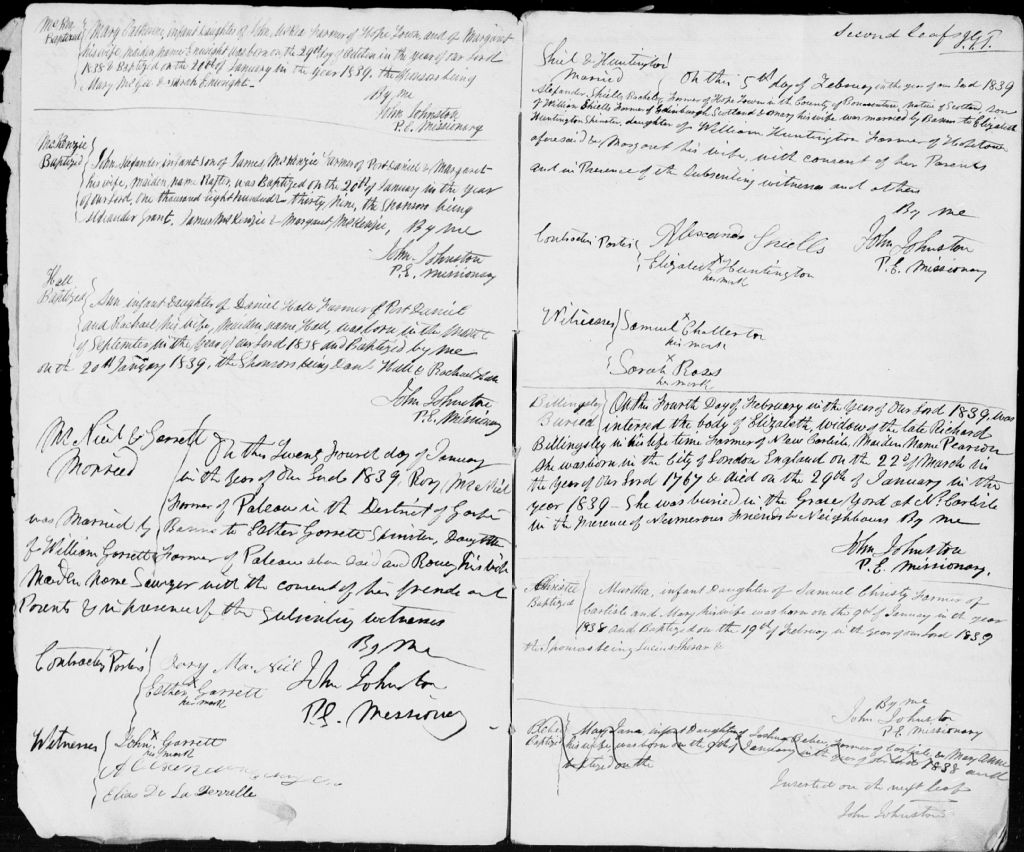 Baptized
Mary Catherine, infant daughter of John McRa Farmer of Hope Town, and of Margaret
his wife, maiden name Enright was born on the 29th day of October in the year of our Lord
1838 & Baptized on the 20th of January in the year 1839, the sponsors being
Mary McGie & Sarah Enright -
By me
John Johnston
P. E. Missionary
McKenzie
Baptized
John Alexander infant son of James McKenzie Farmer of Port Daniel & Margaret
his wife, maiden name Rafter, was Baptized on the 20th of January in the year
of our Lord, one thousand eight hundred thirty nine, the Sponsors being
Alexander Grant, James McKenzie & Margaret McKenzie, By me
John Johnston
P. E. Missionary
Hall
Baptized
Ann infant Daughter of Daniel Hall Farmer of Port Daniel
and Rachael his wife, Maiden name Hall, was born in the Month
of September in the year of our Lord 1838 and Baptized by me
on the 20th January 1839, the Sponsors being Danl. Hall & Rachael Hall
John Johnston
P. E. Missionary
McNiel & Garrett
Married
On this Twenty Fourth day of January
in the year of Our Lord 1839, Rory McNiel
Farmer of Pabeau in the District of Gaspé
was Married by Banns to Esther Garrett Spinster, Daughter
of William Garrett Farmer of Pabeau above said and his wife
Maiden Name Sawyer with the consent of his friends and
Parents & in presence of the Subscribing witnesses
By Me
John Johnston
P. E. Missionary
Contracting Parties
Rory MacNiel
Esther X Garrett
her mark
Witnesses
John X Garrett
his mark
Elias De La Perrelle
Second leaf
Shiel & Huntington
Married
On this 5th day of February in the year of our Lord 1839
Alexander Shiells Bachelor, Farmer of Hope Town in the County of Bonaventure, native of Scotland son
of William Shiells Farmer of Edinburgh, Scotland & Mary his wife was married by Banns to Elizabeth
Huntington Spinster, daughter of William Huntington Farmer of Hopetown
aforesaid & Margaret his wife, with consent of her Parents
and in Presence of the Subscribing witnesses and others
By me
John Johnston
P. E. Missionary
Contracting Parties
Alexander Shiells
Elizabeth X Huntington
her mark
Witnesses
Samuel X Chatterton
his mark
Sarah X Ross
her mark
Billingsley
Buried
On this Fourth Day of February in the year of Our Lord 1839, was
interred the body of Elizabeth, widow of the late Richard
Billingsley in his life time Farmer of New Carlisle, Maiden Name Pearson
She was born in the City of London England on the 22d of March in
the year of Our Lord 1767 & died on the 29th of January in the
year 1839 - She was buried in the Grave Yard at N. Carlisle
in the Presence of Numerous Friends & Neighbours By me
John Johnston
P. E. Missionary.
Christie
Baptized
Martha, infant Daughter of Samuel Christy Farmer of
Carlisle and Mary his wife was born on the 9th of January in the year
1838 and Baptized on the 19th of February in the year of our Lord 1839
the Sponsors being
By me
John Johnston
P. E. Missionary
Baptized
Mary Jana infant Daughter of Joshua Farmer of Carlisle and Mary Anne
his wife was born on the of January in the year of our Lord 1838 and
baptized on the
Inserted on the next leaf
John Johnston